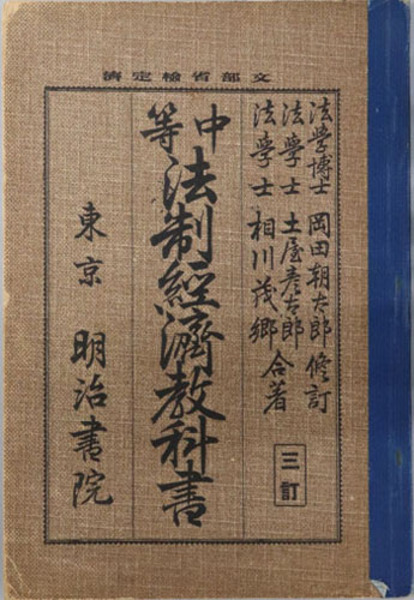 文部省検定済
法學博士 岡田朝太郎 修訂
法學士 土屋彦太郎
法學士 相川茂郷 合著
三訂
中等 法制經濟教科書
東京 明治書院